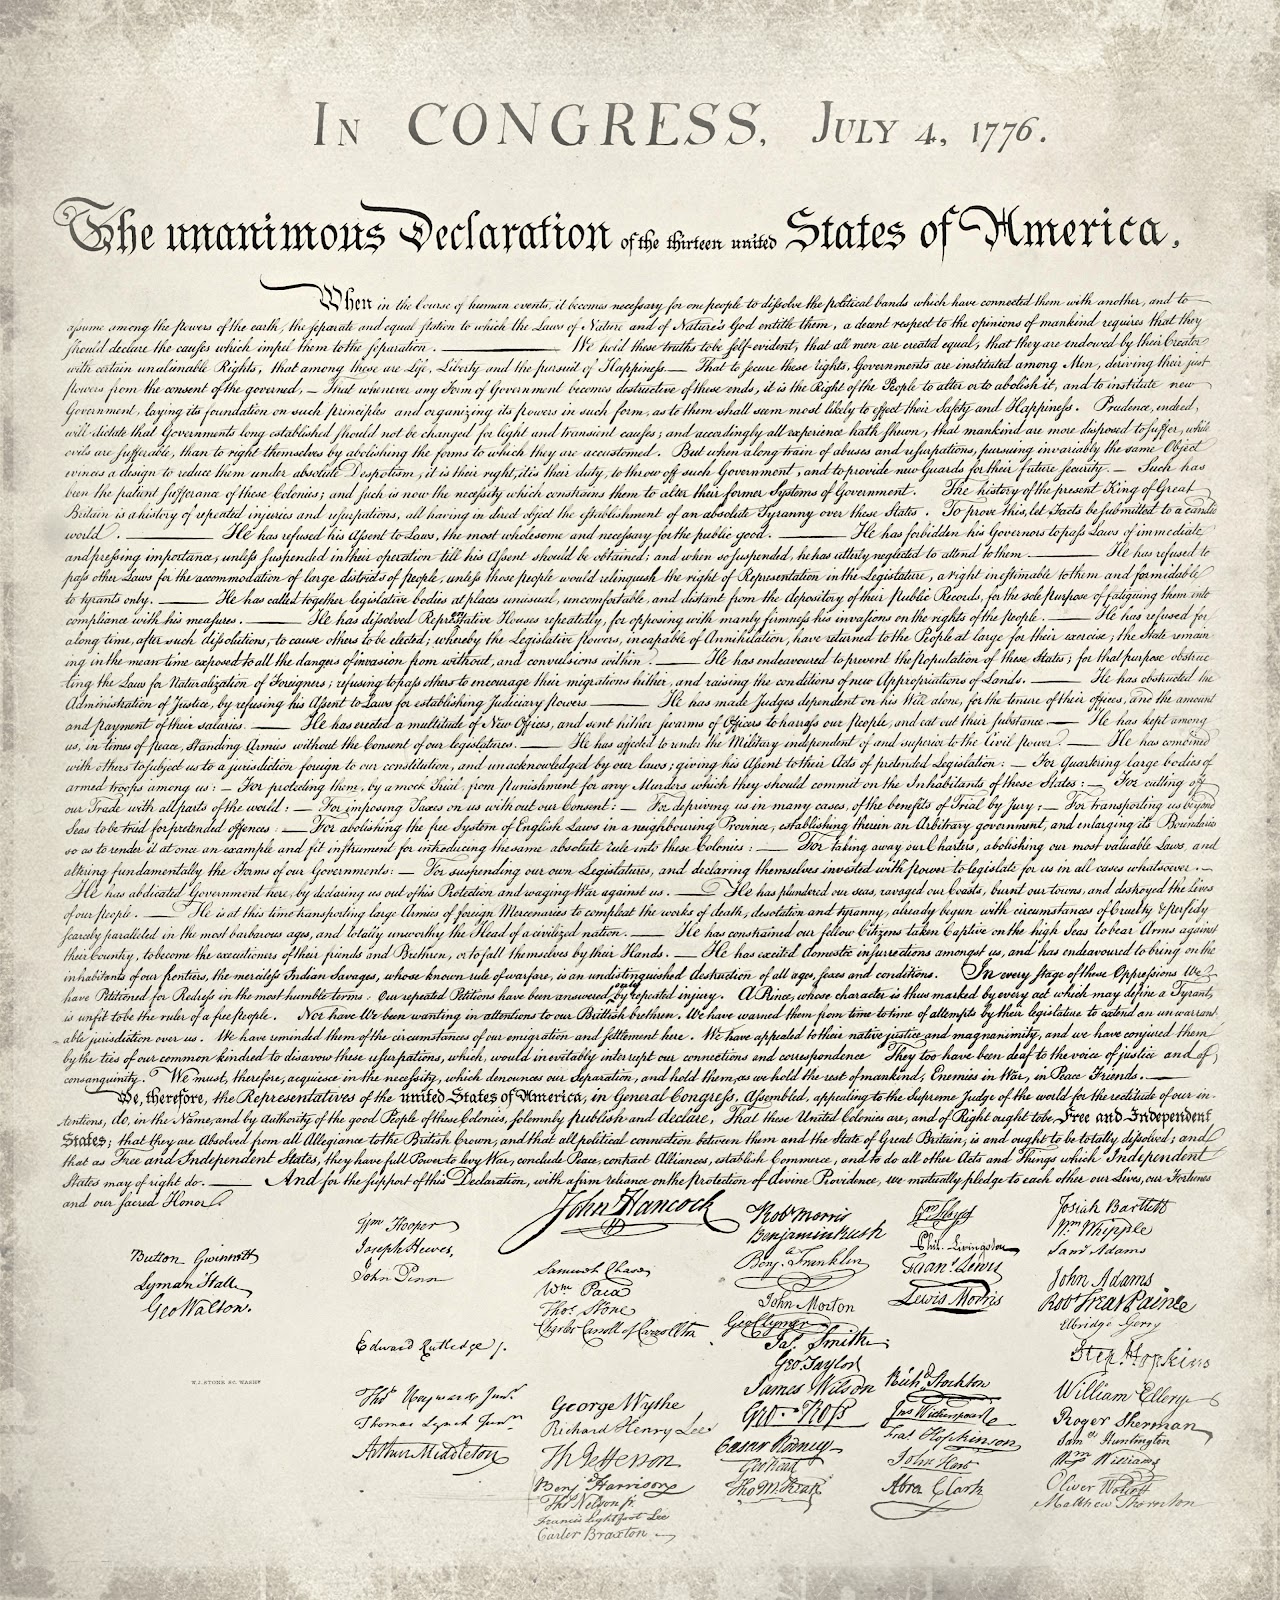 In CONGRESS, July 4, 1776.
The unanimous Declaration of the thirteen united States of America,
When in the Course of human events, it becomes necessary for one people to dissolve the political bands which have connected them with another, and to
assume among the powers of the earth, the separate and equal station to which the Laws of Nature and of Nature's God entitle them, a decent respect to the opinions of mankind requires that they
should declare the causes which impel them to the separation. — We hold these truths to be self-evident, that all men are created equal, that they are endowed by their Creator
with certain unalienable Rights, that among these are Life, Liberty and the pursuit of Happiness. — That to secure these rights, Governments are instituted among Men, deriving their just
powers from the consent of the governed, — That whenever any Form of Government becomes destructive of these ends, it is the Right of the People to alter or to abolish it, and to institute new
Government, laying its foundation on such principles and organizing its powers in such form, as to them shall seem most likely to effect their Safety and Happiness. Prudence, indeed,
will dictate that Governments long established should not be changed for light and transient causes; and accordingly all experience hath shewn, that mankind are more disposed to suffer, while
evils are sufferable, than to right themselves by abolishing the forms to which they are accustomed. But when a long train of abuses and usurpations, pursuing invariably the same Object
evinces a design to reduce them under absolute Despotism, it is their right, it is their duty, to throw off such Government, and to provide new Guards for their future security. — Such has
been the patient sufferance of these Colonies; and such is now the necessity which constrains them to alter their former Systems of Government. The history of the present King of Great
Britain is a history of repeated injuries and usurpations, all having in direct object the establishment of an absolute Tyranny over these States. To prove this, let Facts be submitted to a candid
world. — He has refused his Assent to Laws, the most wholesome and necessary for the public good. — He has forbidden his Governors to pass Laws of immediate
and pressing importance, unless suspended in their operation till his Assent should be obtained; and when so suspended, he has utterly neglected to attend to them. — He has refused to
pass other Laws for the accommodation of large districts of people, unless those people would relinquish the right of Representation in the Legislature, a right inestimable to them and formidable
to tyrants only. — He has called together legislative bodies at places unusual, uncomfortable, and distant from the depository of their Public Records, for the sole purpose of fatiguing them into
compliance with his measures. — He has dissolved Representative Houses repeatedly, for opposing with manly firmness his invasions on the rights of the people. — He has refused for
a long time, after such dissolutions, to cause others to be elected; whereby the Legislative powers, incapable of Annihilation, have returned to the People at large for their exercise; the State remain
ing in the mean time exposed to all the dangers of invasion from without, and convulsions within. — He has endeavoured to prevent the population of these States; for that purpose obstruc
ting the Laws for Naturalization of Foreigners; refusing to pass others to encourage their migrations hither, and raising the conditions of new Appropriations of Lands. — He has obstructed the
Administration of Justice, by refusing his Assent to Laws for establishing Judiciary powers — He has made Judges dependent on his Will alone, for the tenure of their offices, and the amount
and payment of their salaries. — He has erected a multitude of New Offices, and sent hither swarms of Officers to harrass our people, and eat out their substance. — He has kept among
us, in times of peace, Standing Armies without the Consent of our legislatures. — He has affected to render the Military independent of and superior to the Civil power. — He has combined
with others to subject us to a jurisdiction foreign to our constitution, and unacknowledged by our laws; giving his Assent to their Acts of pretended Legislation: — For Quartering large bodies of
armed troops among us: — For protecting them, by a mock Trial, from punishment for any Murders which they should commit on the Inhabitants of these States: — For cutting off
our Trade with all parts of the world: — For imposing Taxes on us without our Consent: — For depriving us in many cases, of the benefits of Trial by Jury: — For transporting us beyond
Seas to be tried for pretended offences: — For abolishing the free System of English Laws in a neighbouring Province, establishing therein an Arbitrary government, and enlarging its Boundaries
so as to render it at once an example and fit instrument for introducing the same absolute rule into these Colonies: — For taking away our Charters, abolishing our most valuable Laws, and
altering fundamentally the Forms of our Governments: — For suspending our own Legislatures, and declaring themselves invested with power to legislate for us in all cases whatsoever. —
He has abdicated Government here, by declaring us out of his Protection and waging War against us. — He has plundered our seas, ravaged our Coasts, burnt our towns, and destroyed the lives
of our people. — He is at this time transporting large Armies of foreign Mercenaries to compleat the works of death, desolation and tyranny, already begun with circumstances of Cruelty & perfidy
scarcely paralleled in the most barbarous ages, and totally unworthy the Head of a civilized nation. — He has constrained our fellow Citizens taken Captive on the high Seas to bear Arms against
their Country, to become the executioners of their friends and Brethren, or to fall themselves by their Hands. — He has excited domestic insurrections amongst us, and has endeavoured to bring on the
inhabitants of our frontiers, the merciless Indian Savages, whose known rule of warfare, is an undistinguished destruction of all ages, sexes and conditions. In every stage of these Oppressions We
have Petitioned for Redress in the most humble terms: Our repeated Petitions have been answered only by repeated injury. A Prince, whose character is thus marked by every act which may define a Tyrant,
is unfit to be the ruler of a free people. Nor have We been wanting in attentions to our Brittish brethren. We have warned them from time to time of attempts by their legislature to extend an unwarrant-
able jurisdiction over us. We have reminded them of the circumstances of our emigration and settlement here. We have appealed to their native justice and magnanimity, and we have conjured them
by the ties of our common kindred to disavow these usurpations, which, would inevitably interrupt our connections and correspondence They too have been deaf to the voice of justice and of
consanguinity. We must, therefore, acquiesce in the necessity, which denounces our Separation, and hold them, as we hold the rest of mankind, Enemies in War, in Peace Friends. —
We, therefore, the Representatives of the united States of America, in General Congress, Assembled, appealing to the Supreme Judge of the world for the rectitude of our in-
tentions, do, in the Name, and by Authority of the good People of these Colonies, solemnly publish and declare, That these United Colonies are, and of Right ought to be Free and Independent
States; that they are Absolved from all Allegiance to the British Crown, and that all political connection between them and the State of Great Britain, is and ought to be totally dissolved; and
that as Free and Independent States, they have full Power to levy War, conclude Peace, contract Alliances, establish Commerce, and to do all other Acts and Things which Independent
States may of right do. — And for the support of this Declaration, with a firm reliance on the protection of divine Providence, we mutually pledge to each other our Lives, our Fortunes
and our sacred Honor.
Button Gwinnett
Lyman Hall
Geo Walton.
W.J. STONE SC. WASHn
Wm Hooper
Joseph Hewes,
John Penn
Edward Rutledge /.
Thos Heyward Junr.
Thomas Lynch Junr.
Arthur Middleton
John Hancock
Samuel Chase
Wm Paca
Thos. Stone
Charles Carroll of Carrollton
George Wythe
Richard Henry Lee
Th Jefferson
Benj Harrison
Thos Nelson jr.
Francis Lightfoot Lee
Carter Braxton
Robt Morris
Benjamin Rush
Benja. Franklin
John Morton
Geo Clymer
Jas. Smith.
Geo. Taylor
James Wilson
Geo. Ross
Caesar Rodney
Geo Read
Tho M:Kean
Wm Floyd
Phil. Livingston
Frans. Lewis
Lewis Morris
Richd. Stockton
Jno Witherspoon
Fras. Hopkinson
John Hart
Abra Clark
Josiah Bartlett
Wm. Whipple
Saml Adams
John Adams
Robt Treat Paine
Elbridge Gerry
Step. Hopkins
William Ellery
Roger Sherman
Saml Huntington
Wm. Williams
Oliver Wolcott
Matthew Thornton